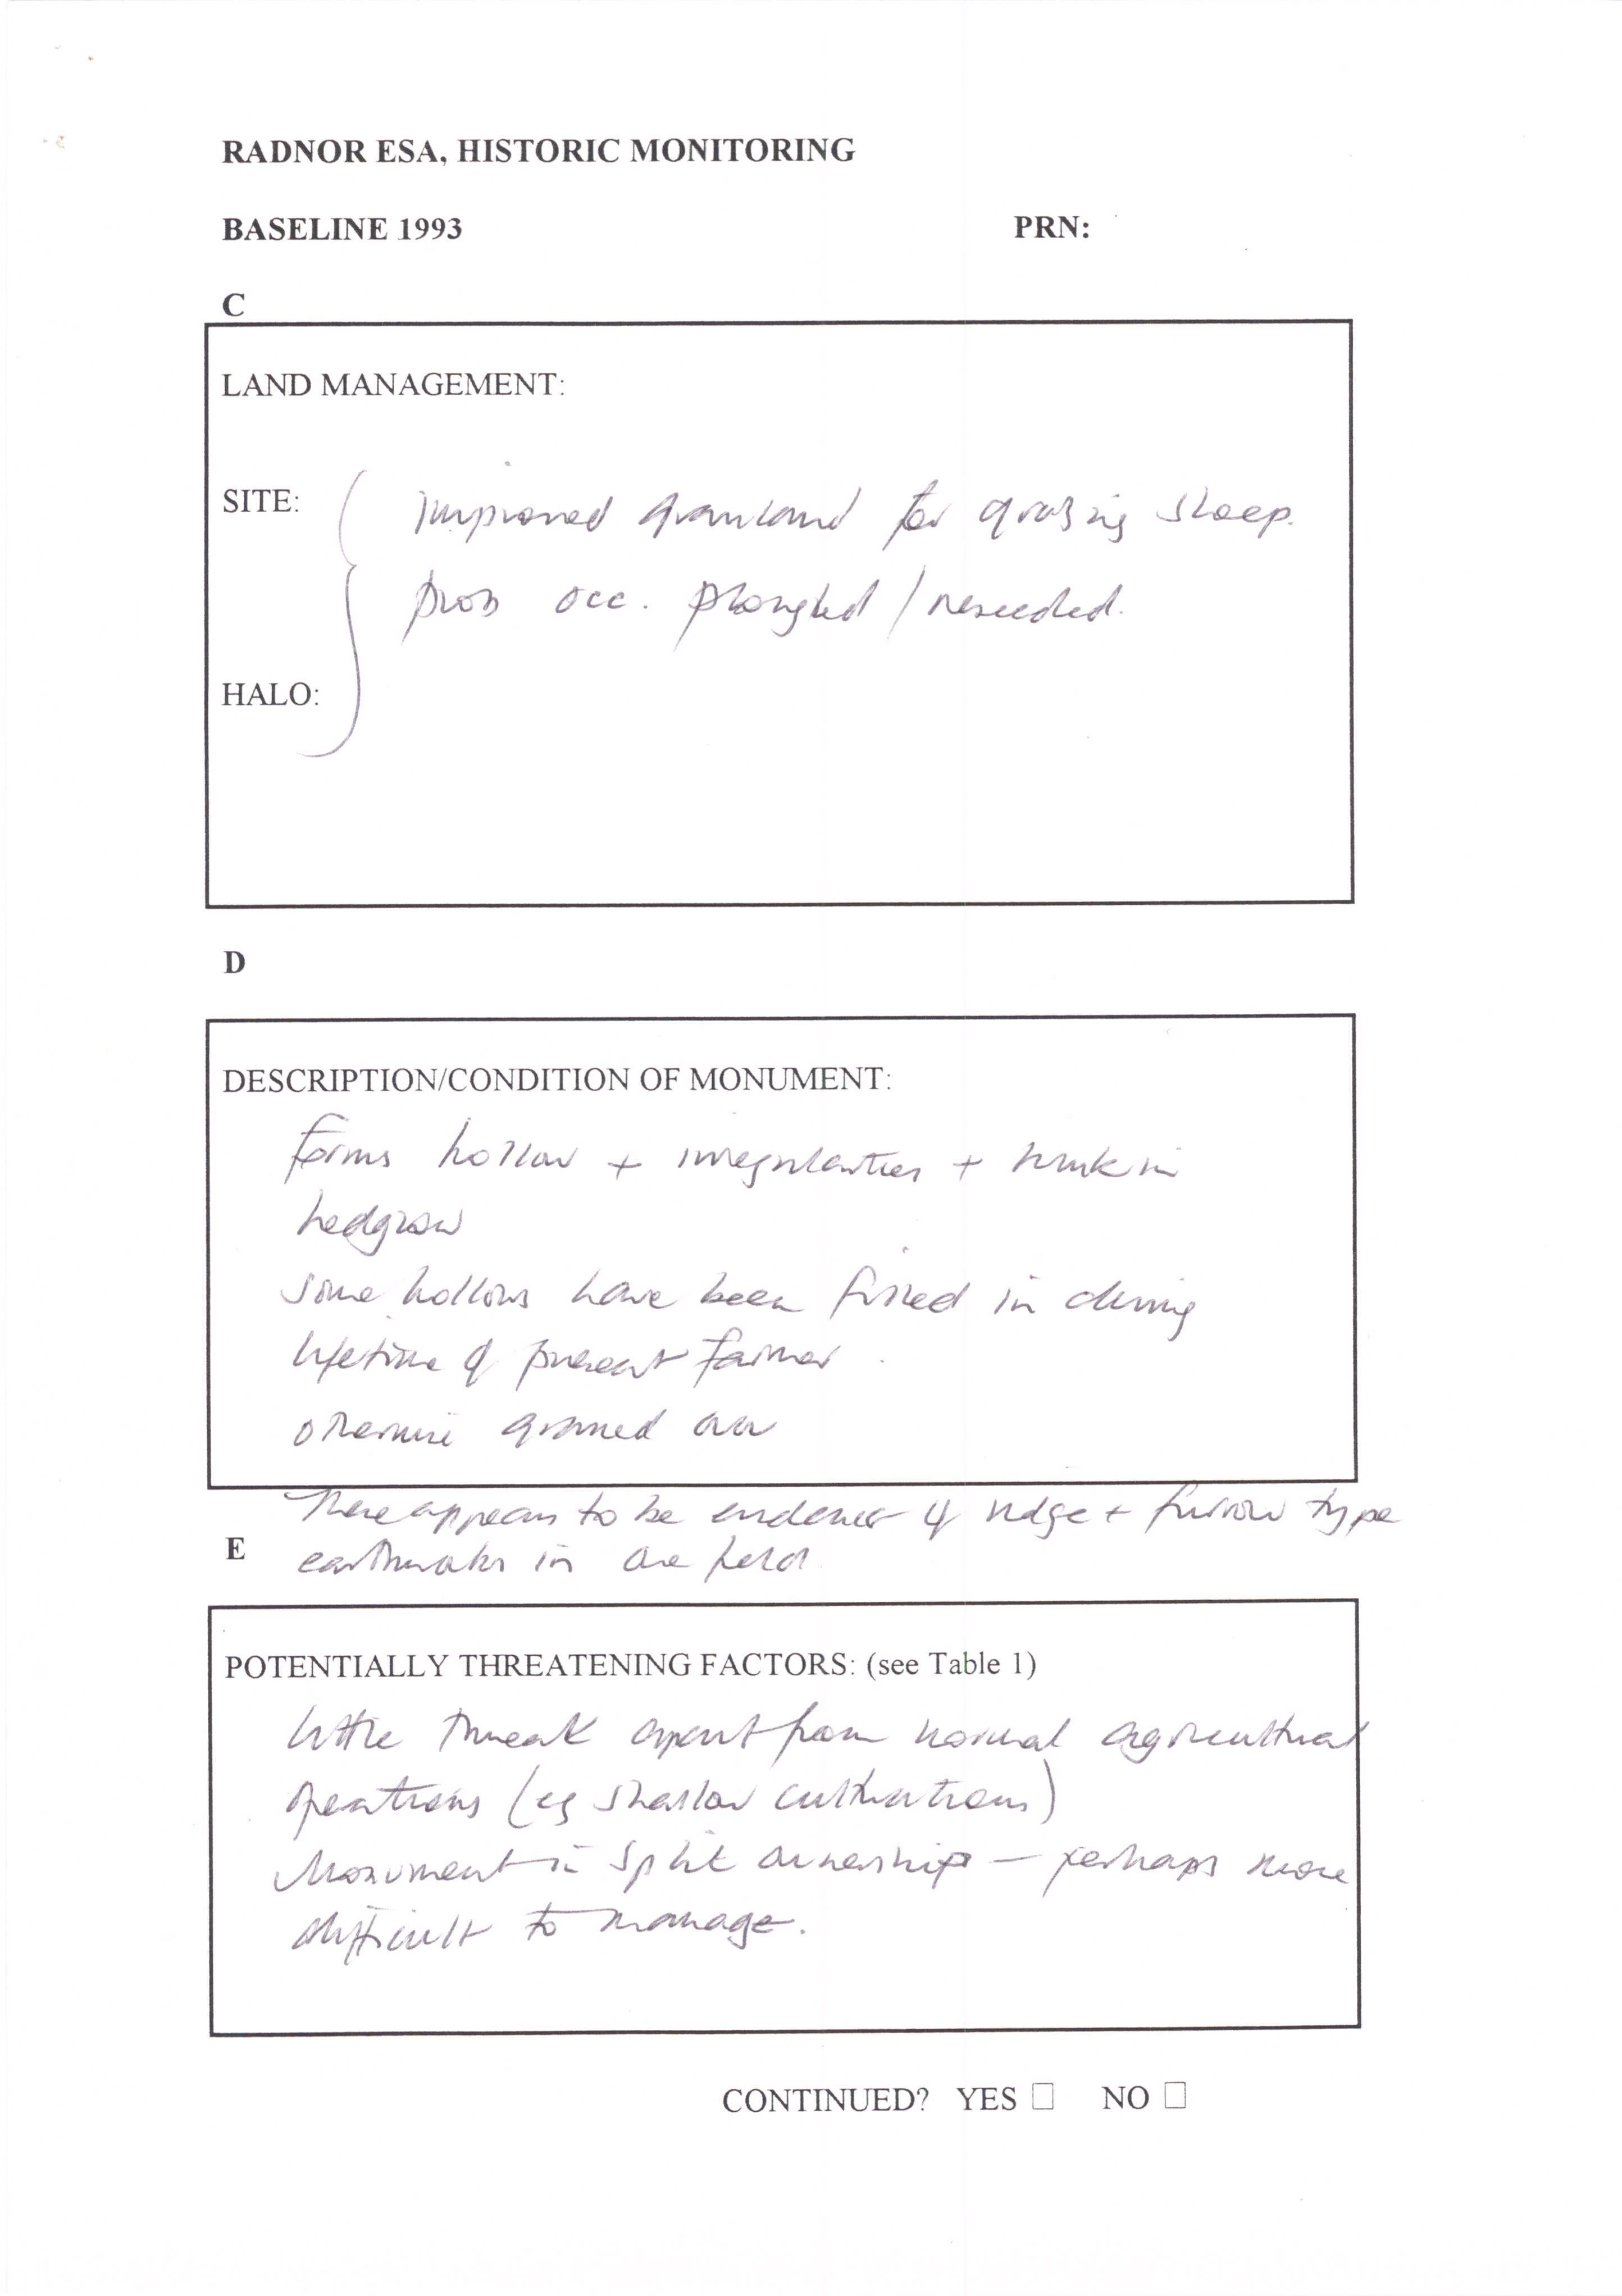 RADNOR ESA, HISTORIC MONITORING
BASELINE 1993 PRN:
C
LAND MANAGEMENT:
SITE: improved grassland for grazing sheep.
prob occ. ploughed / reseeded.
HALO:
D
DESCRIPTION/CONDITION OF MONUMENT:
forms hollow + irregularities + in
hedgrow
Some hollows have been filled in during
lifetime of present farmer.
otherwise grassed over
There appears to be evidence of ridge + furrow type
E
earthworks in one field.
POTENTIALLY THREATENING FACTORS: (see Table 1)
little threat apart from normal agricultural
operations (eg shallow cultivations)
Monument in split ownership – perhaps more
difficult to manage.
CONTINUED? YES ☐ NO ☐